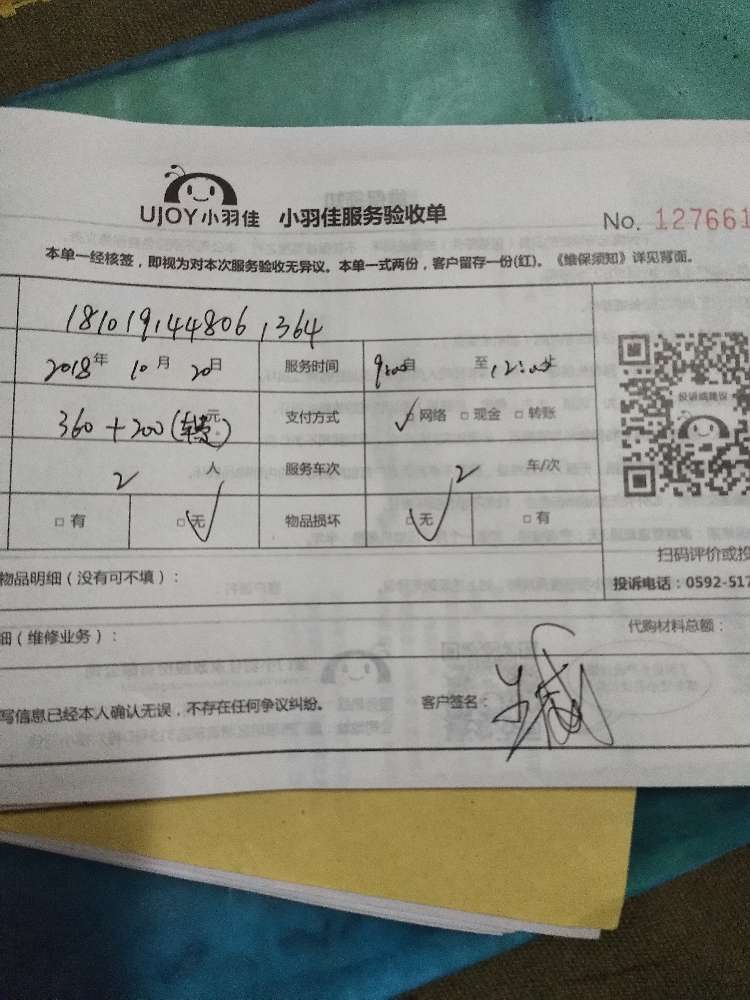 UJOY小羽佳 小羽佳服务验收单 No. 127661
本单一经核签，即视为对本次服务验收无异议。本单一式两份，客户留存一份(红)。《维保须知》详见背面。
181019144806,364
2018年 10月 20日 服务时间 9:00自 至12:00
360+200(转元) 支付方式 ☑网络 □现金 □转账
投诉或建议
2 人 服务车次 2 车/次
□有 ☑无 物品损坏 ☑无 □有
扫码评价或投
物品明细（没有可不填）： 投诉电话：0592-517
细（维修业务）： 代购材料总额：
写信息已经本人确认无误，不存在任何争议纠纷。 客户签名：